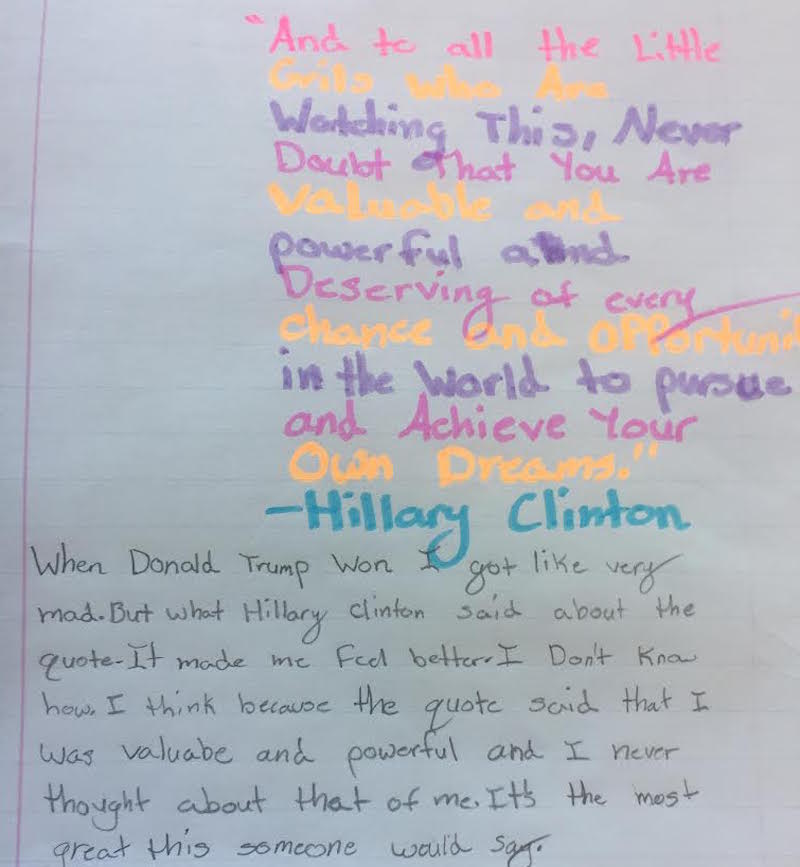 "And to all the Little
Grils who Are
Watching This, Never
Doubt That You Are
Valuable and
powerful and
Deserving of every
chance and opportunit
in the World to pursue
and Achieve Your
Own Dreams."
-Hillary Clinton
When Donald Trump Won I got like very
mad. But what Hillary clinton said about the
quote-It made me feel better. I Don't Know
how. I think because the quote said that I
was valuabe and powerful and I never
thought about that of me. It's the most
great this someone would say.